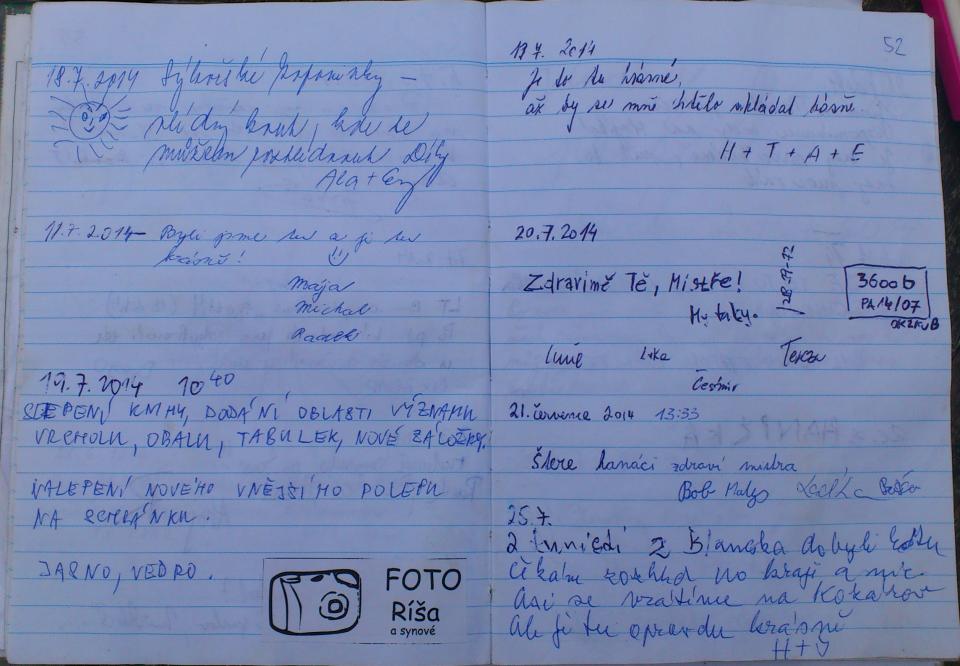 18.7.2014 Sýkořské
klidný kout, kde se
můžem Díky
Ala +
11.7.2014 – Byli jsme tu a je tu
krásně!
Mája
Michal
Radek
19.7.2014 10 40
SLEPENÍ KNIHY, DODÁNÍ OBLASTI VÝZNAMU
VRCHOLU, OBALU, TABULEK, NOVÉ ZÁLOŽKY.
NALEPENÍ NOVÉHO VNĚJŠÍHO POLEPU
NA SCHRÁNKU.
JASNO, VEDRO.
FOTO
Ríša
a synové
52
19.7. 2014
Je to tu krásné,
až by se mně chtělo skládat básně.
H + T + A + E
20.7.2014
Zdravimě Tě, Mistře!
My taky.
3600b
PA14/07
OK2XVB
Terza
Čestmír
21. července 2014 13:33
Štere hanáci zdraví mistra
Bob
25.7.
2 z Blanska dobyli
čekám rozhled po kraji a nic.
Asi se vrátíme na Kokořov
Ale je tu opravdu krásně
H+J